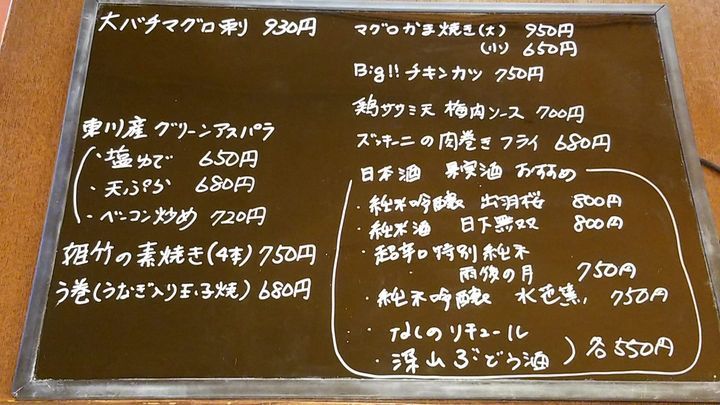 大バチマグロ刺 930円
東川産 グリーンアスパラ
・塩ゆで 650円
・天ぷら 680円
・ベーコン炒め 720円
姫竹の素焼き(4本) 750円
う巻(うなぎ入り玉子焼) 680円
マグロかま焼き(大) 950円
(小) 650円
Big!! チキンカツ 750円
鶏ササミ天 梅肉ソース 700円
ズッキーニの肉巻きフライ 680円
日本酒 果実酒 おすすめ
・純米吟醸 出羽桜 800円
・純米酒 日下無双 800円
・超辛口特別純米
雨後の月 750円
・純米吟醸 水芭蕉 750円
・なしのリキュール
・深山ぶどう酒 ) 各550円